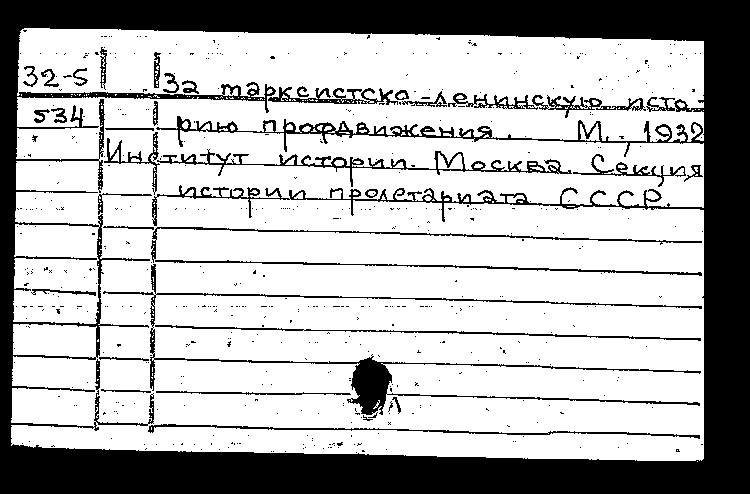 32-5 За марксистско-ленинскую исто-
534 рию профдвижения. М., 1932
Институт истории. Москва. Секция
истории пролетариата СССР.